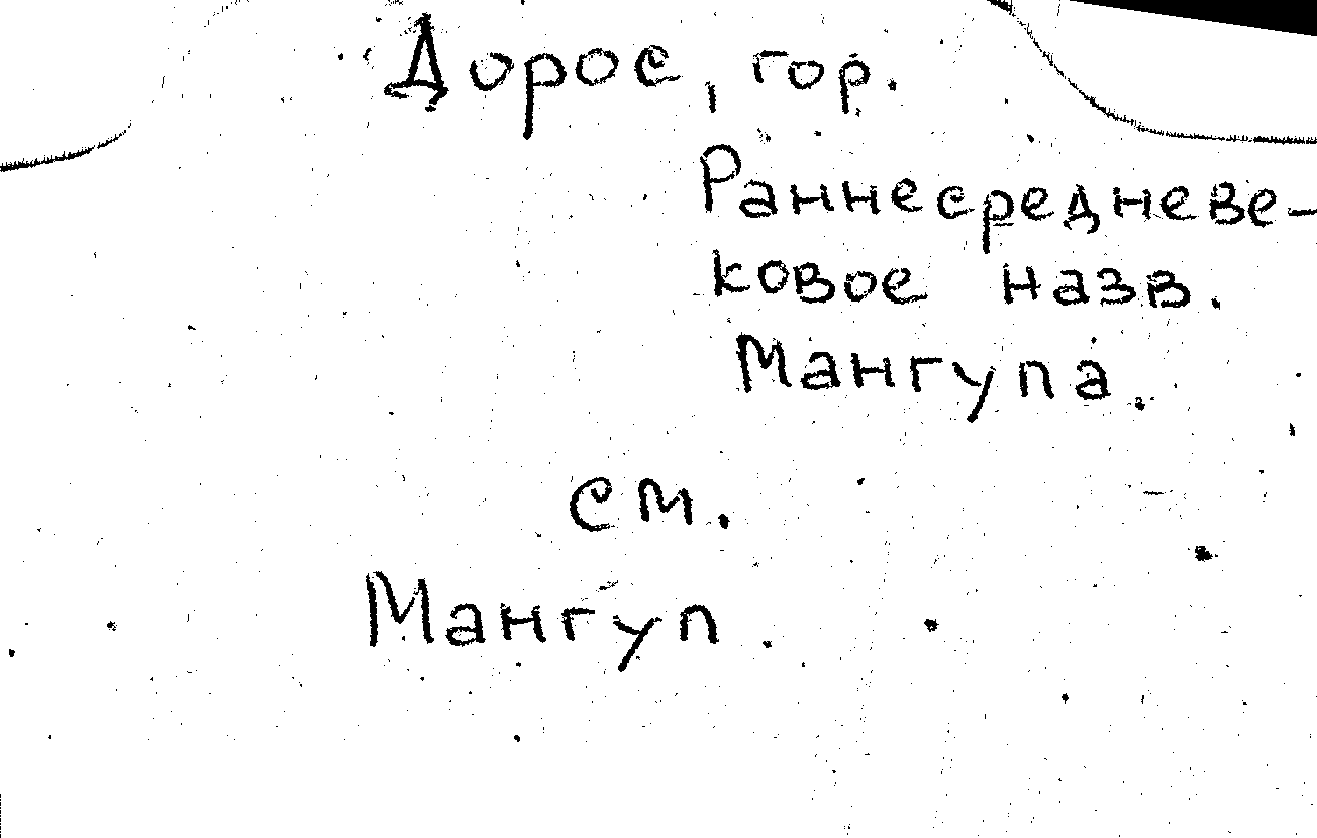 Дорос, гор.
Раннесредневе-
ковое назв.
Мангупа.
см.
Мангуп.